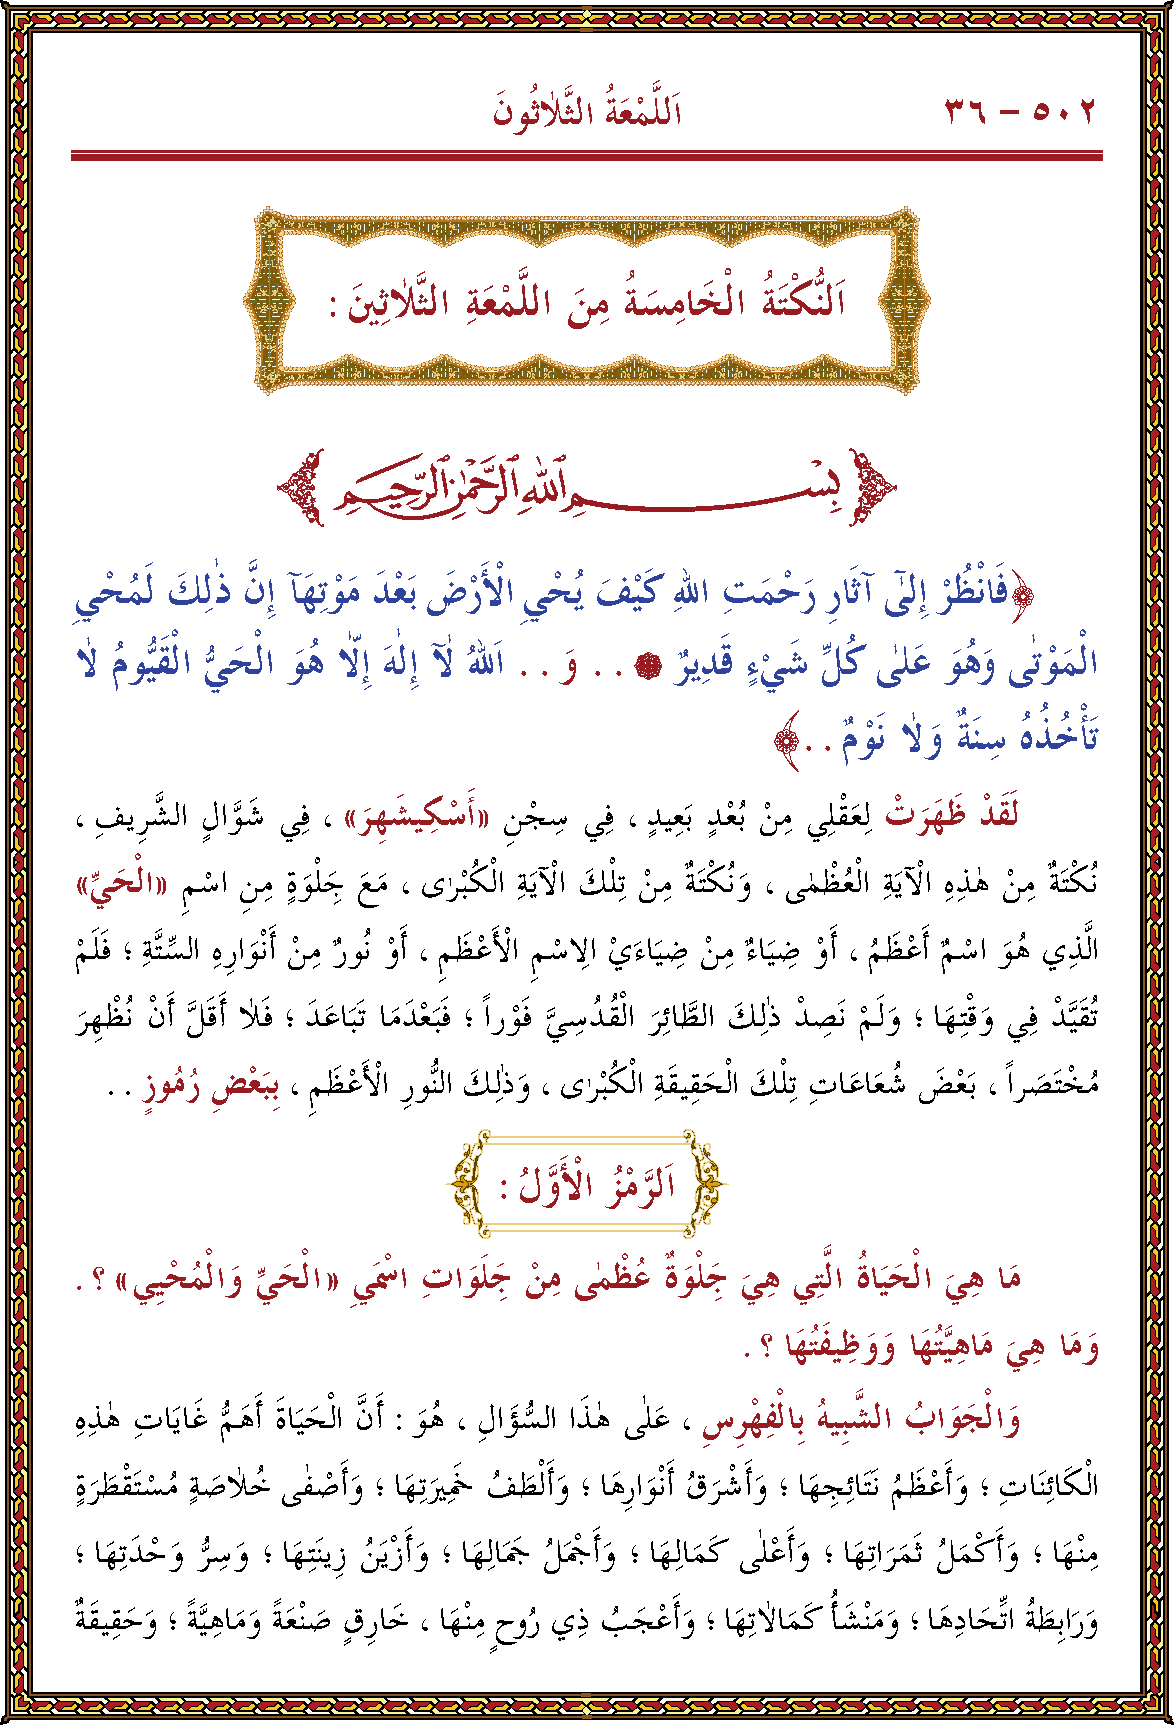 ٥٠٢ – ٣٦
اَللَّمْعَةُ الثَّلَاثُونَ
اَلنُّكْتَةُ الْخَامِسَةُ مِنَ اللَّمْعَةِ الثَّلَاثِينَ :
بِسْمِ اللهِ الرَّحْمٰنِ الرَّحِيمِ
﴿فَانْظُرْ إِلٰٓى آثَارِ رَحْمَتِ اللهِ كَيْفَ يُحْيِي الْأَرْضَ بَعْدَ مَوْتِهَآ إِنَّ ذٰلِكَ لَمُحْيِي
الْمَوْتٰى وَهُوَ عَلٰى كُلِّ شَيْءٍ قَدِيرٌ ۞ . . وَ . . اَللهُ لَٓا إِلٰهَ إِلَّا هُوَ الْحَيُّ الْقَيُّومُ لَا
تَأْخُذُهُ سِنَةٌ وَلَا نَوْمٌ . .﴾
لَقَدْ ظَهَرَتْ لِعَقْلِي مِنْ بُعْدٍ بَعِيدٍ ، فِي سِجْنِ «أَسْكِيشَهِرَ» ، فِي شَوَّالٍ الشَّرِيفِ ،
نُكْتَةٌ مِنْ هٰذِهِ الْآيَةِ الْعُظْمٰى ، وَنُكْتَةٌ مِنْ تِلْكَ الْآيَةِ الْكُبْرٰى ، مَعَ جَلْوَةٍ مِنِ اسْمِ «الْحَيِّ»
الَّذِي هُوَ اسْمٌ أَعْظَمُ ، أَوْ ضِيَاءٌ مِنْ ضِيَاءَيْ الِاسْمِ الْأَعْظَمِ ، أَوْ نُورٌ مِنْ أَنْوَارِهِ السِّتَّةِ ؛ فَلَمْ
تُقَيَّدْ فِي وَقْتِهَا ؛ وَلَمْ نَصِدْ ذٰلِكَ الطَّائِرَ الْقُدُسِيَّ فَوْراً ؛ فَبَعْدَمَا تَبَاعَدَ ؛ فَلَا أَقَلَّ أَنْ نُظْهِرَ
مُخْتَصَراً ، بَعْضَ شُعَاعَاتِ تِلْكَ الْحَقِيقَةِ الْكُبْرٰى ، وَذٰلِكَ النُّورِ الْأَعْظَمِ ، بِبَعْضِ رُمُوزٍ . .
اَلرَّمْزُ الْأَوَّلُ :
مَا هِيَ الْحَيَاةُ الَّتِي هِيَ جَلْوَةٌ عُظْمٰى مِنْ جَلَوَاتِ اسْمَيِ «الْحَيِّ وَالْمُحْيِي» ؟ .
وَمَا هِيَ مَاهِيَّتُهَا وَوَظِيفَتُهَا ؟ .
وَالْجَوَابُ الشَّبِيهُ بِالْفِهْرِسِ ، عَلٰى هٰذَا السُّؤَالِ ، هُوَ : أَنَّ الْحَيَاةَ أَهَمُّ غَايَاتِ هٰذِهِ
الْكَائِنَاتِ ؛ وَأَعْظَمُ نَتَائِجِهَا ؛ وَأَشْرَقُ أَنْوَارِهَا ؛ وَأَلْطَفُ خَمِيرَتِهَا ؛ وَأَصْفٰى خُلَاصَةٍ مُسْتَقْطَرَةٍ
مِنْهَا ؛ وَأَكْمَلُ ثَمَرَاتِهَا ؛ وَأَعْلٰى كَمَالِهَا ؛ وَأَجْمَلُ جَمَالِهَا ؛ وَأَزْيَنُ زِينَتِهَا ؛ وَسِرُّ وَحْدَتِهَا ؛
وَرَابِطَةُ اتِّحَادِهَا ؛ وَمَنْشَأُ كَمَالَاتِهَا ؛ وَأَعْجَبُ ذِي رُوحٍ مِنْهَا ، خَارِقٍ صَنْعَةً وَمَاهِيَّةً ؛ وَحَقِيقَةٌ